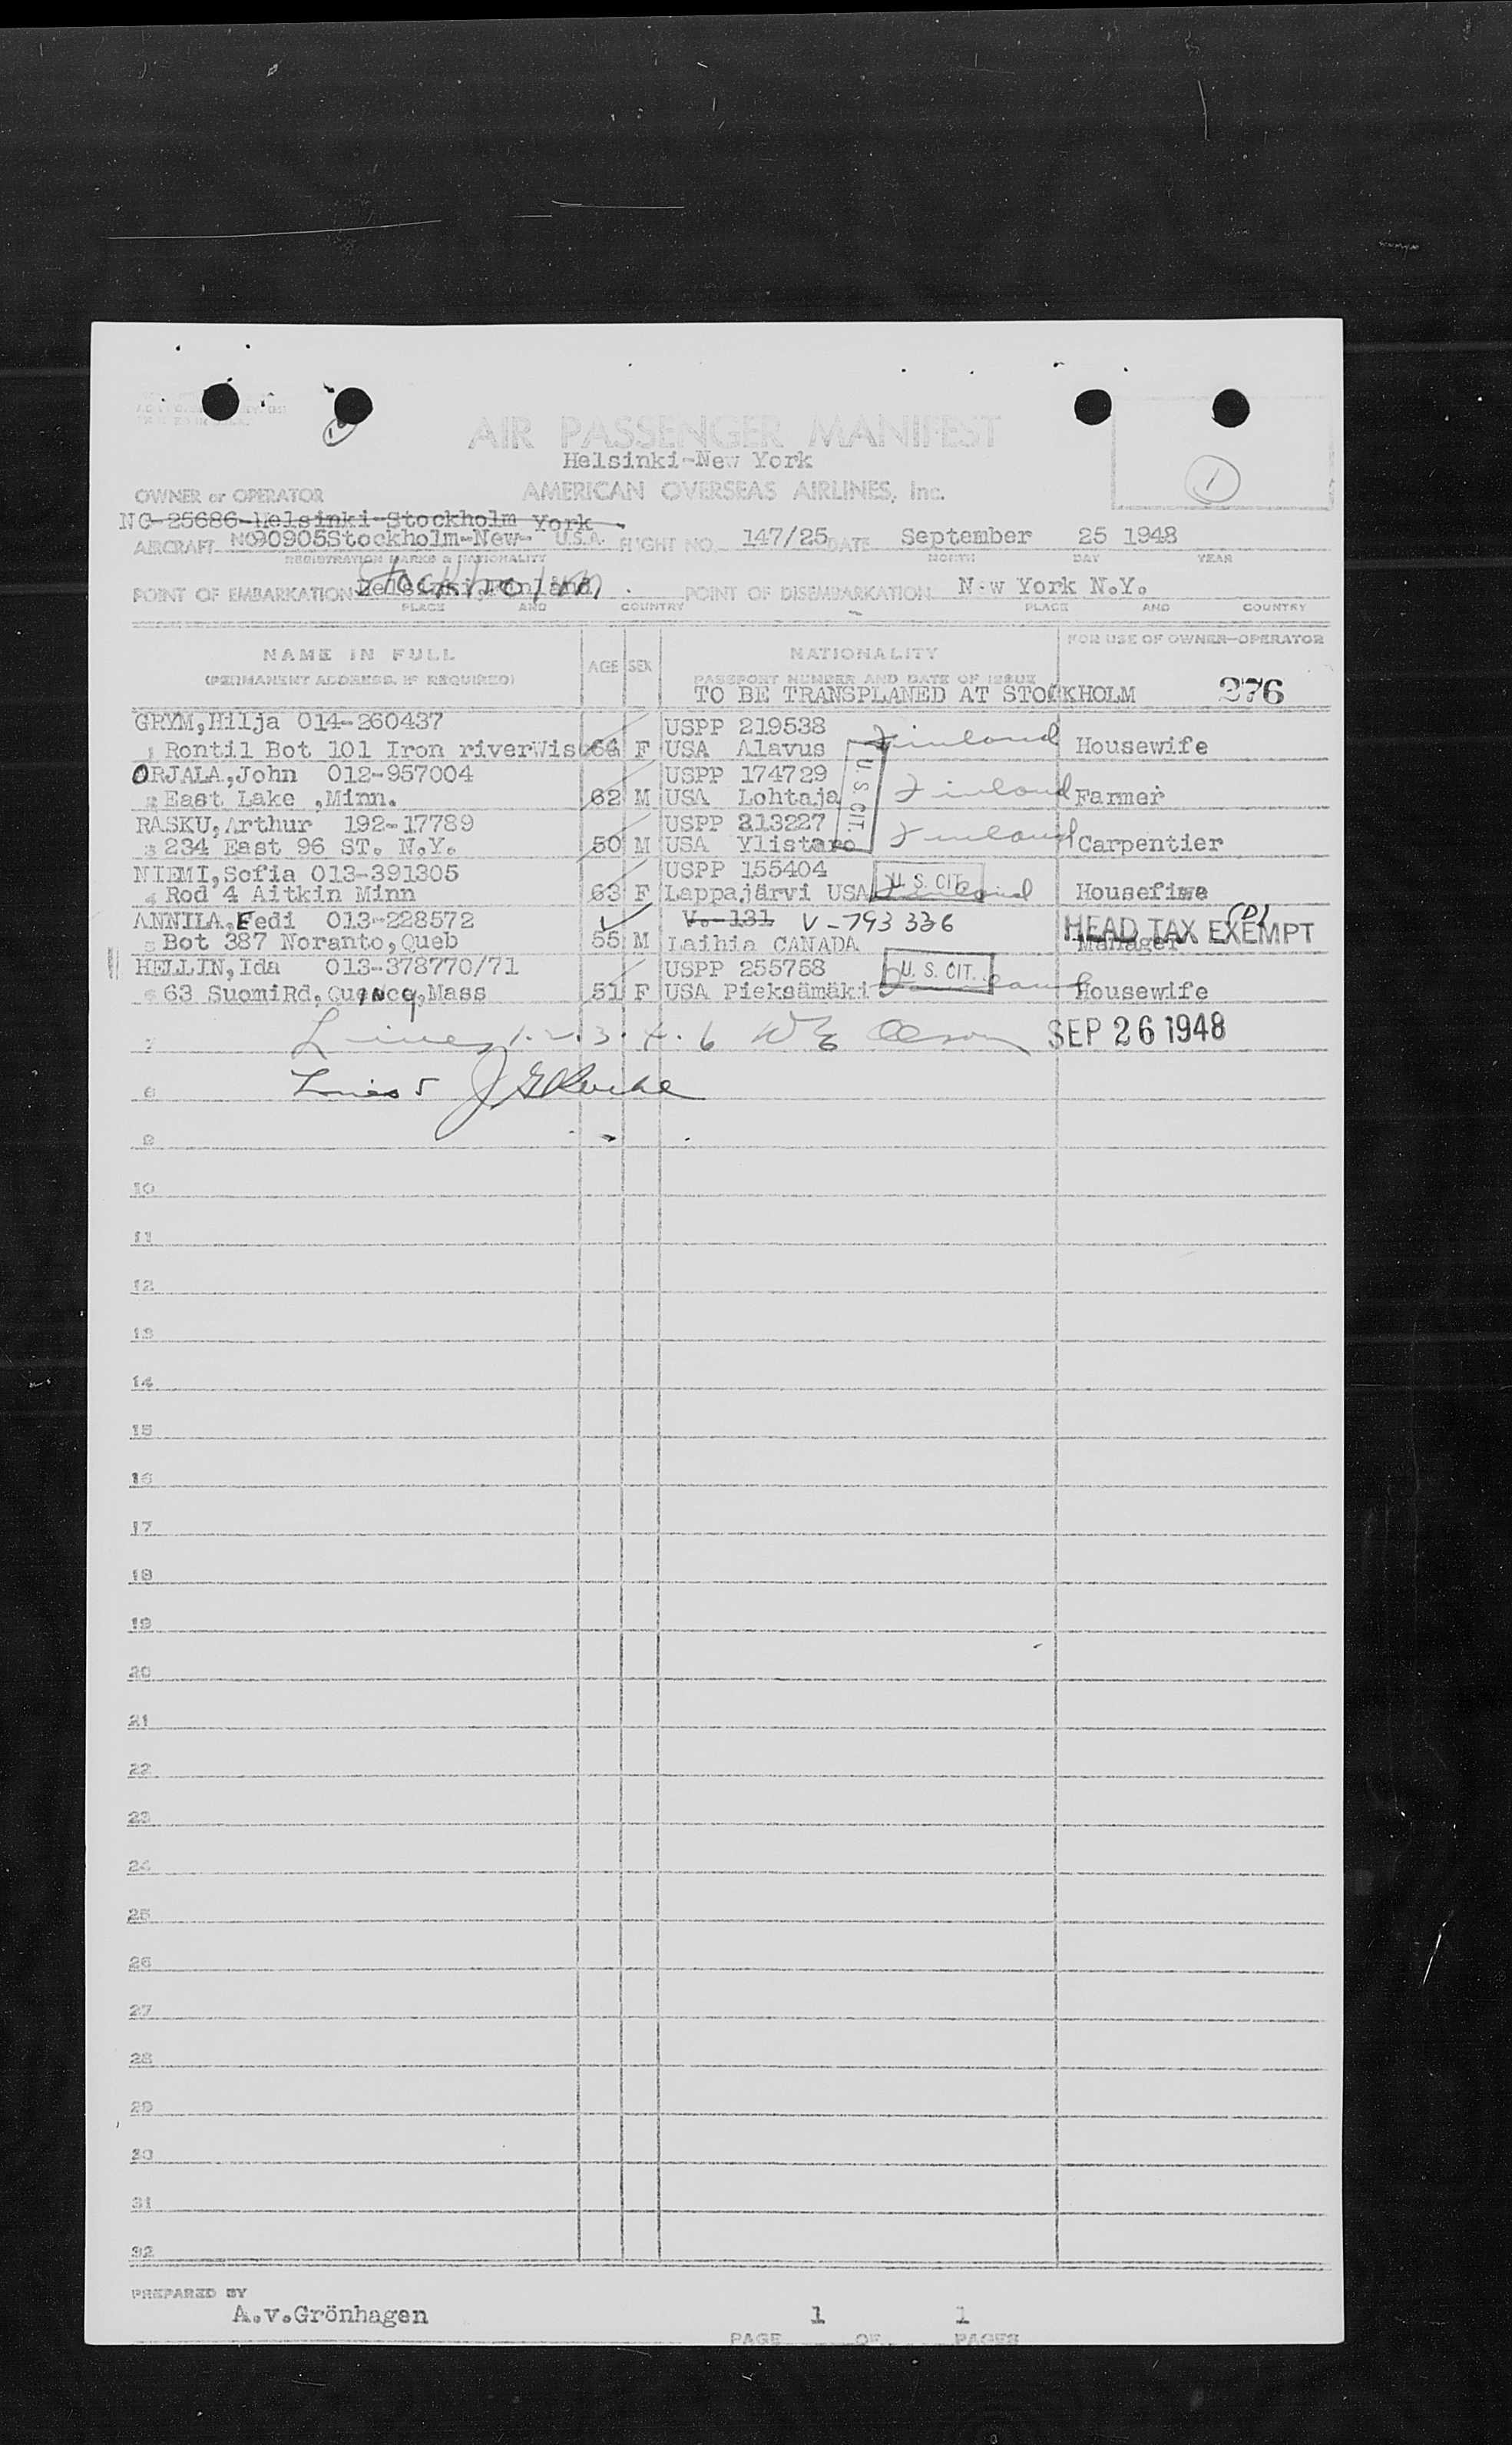 AIR PASSENGER MANIFEST
Helsinki-New York
OWNER or OPERATOR AMERICAN OVERSEAS AIRLINES, Inc.
1
NC-25686-Helsinki-Stockholm York
AIRCRAFT NC90905Stockholm-New- U.S.A. FLIGHT NO. 147/25 DATE September 25 1948
REGISTRATION MARKS & NATIONALITY MONTH DAY YEAR
POINT OF EMBARKATION Helsinki, Finland Stockholm POINT OF DISEMBARKATION New York N.Y.
PLACE AND COUNTRY PLACE AND COUNTRY
NAME IN FULL AGE SEX NATIONALITY FOR USE OF OWNER-OPERATOR
(PERMANENT ADDRESS, IF REQUIRED) PASSPORT NUMBER AND DATE OF ISSUE
TO BE TRANSPLANED AT STOCKHOLM 276
GRYM,Hilja 014-260437 USPP 219538
1 Rontil Bot 101 Iron riverWis 64 F USA Alavus Finland Housewife
ORJALA,John 012-957004 USPP 174729 U. S. CIT.
2 East Lake ,Minn. 62 M USA Lohtaja Finland Farmer
RASKU,Arthur 192-17789 USPP 213227
3 234 East 96 ST. N.Y. 50 M USA Ylistaro Finland Carpentier
NIEMI,Sofia 013-391305 USPP 155404
4 Rod 4 Aitkin Minn 63 F Lappajärvi USA U. S. CIT. Finland Housefiwe
ANNILA,Eedi 013-228572 V.-131 V-793336 HEAD TAX EXEMPT (D)
5 Bot 387 Noranto,Queb 55 M Laihia CANADA Manager
HELLIN,Ida 013-378770/71 USPP 255758 U. S. CIT.
6 63 SuomiRd,Quincy,Mass 51 F USA Pieksämäki Finland Housewife
7 Lines 1.2.3.4.6 W E Olson SEP 26 1948
8 Lines 5
9
10
11
12
13
14
15
16
17
18
19
20
21
22
23
24
25
26
27
28
29
30
31
32
PREPARED BY
A.v.Grönhagen 1 1
PAGE OF PAGES